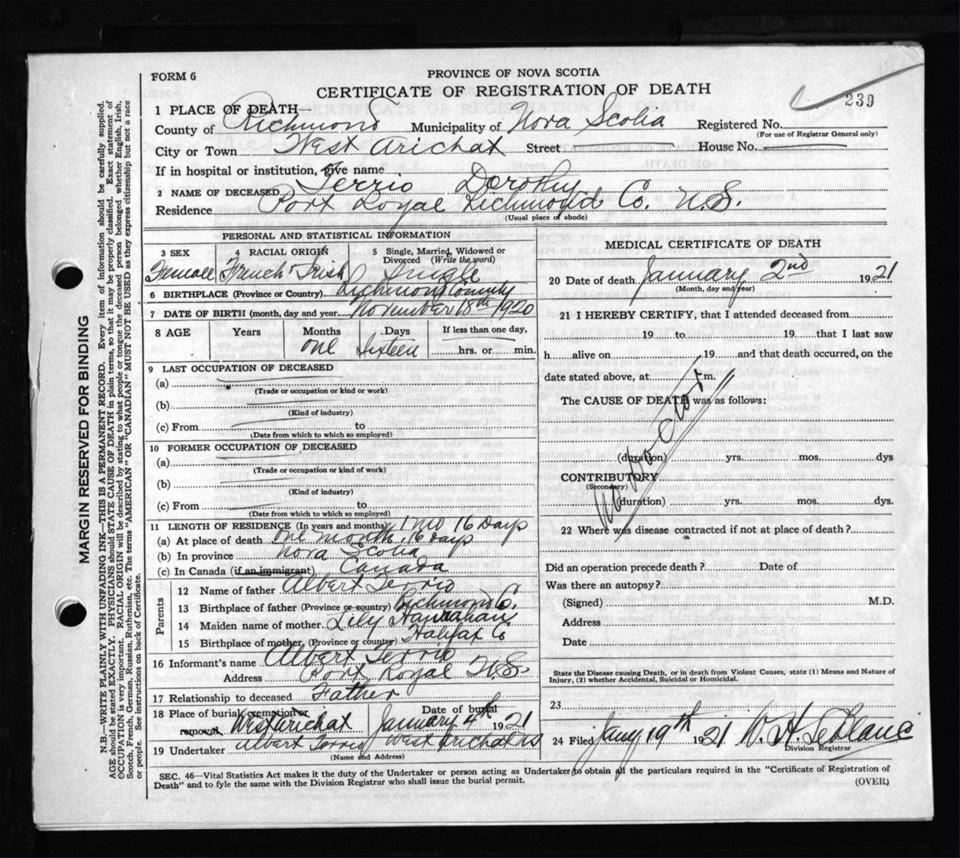 FORM 6
PROVINCE OF NOVA SCOTIA
CERTIFICATE OF REGISTRATION OF DEATH
239
1 PLACE OF DEATH—
County of Richmond Municipality of Nova Scotia Registered No.
(For use of Registrar General only)
City or Town West Arichat Street House No.
If in hospital or institution, give name
2 NAME OF DECEASED Terrio Dorothy
Residence Port Royal Richmond Co. N.S.
(Usual place of abode)
PERSONAL AND STATISTICAL INFORMATION
3 SEX 4 RACIAL ORIGIN 5 Single, Married, Widowed or Divorced (Write the word)
Female French Irish Single
6 BIRTHPLACE (Province or Country) Richmond County
7 DATE OF BIRTH (month, day and year) November 18th 1920
8 AGE Years Months Days If less than one day,
One Sixteen hrs. or min.
9 LAST OCCUPATION OF DECEASED
(a)
(Trade or occupation or kind or work)
(b)
(Kind of industry)
(c) From to
(Date from which to which so employed)
10 FORMER OCCUPATION OF DECEASED
(a)
(Trade or occupation or kind of work)
(b)
(Kind of industry)
(c) From to
(Date from which to which so employed)
11 LENGTH OF RESIDENCE (In years and months) 1 mo 16 Days
(a) At place of death One month, 16 days
(b) In province Nova Scotia
(c) In Canada (if an immigrant) Canada
Parents
12 Name of father Albert Terrio
13 Birthplace of father (Province or country) Richmond C.
14 Maiden name of mother Lily Hanrahan
15 Birthplace of mother (Province or country) Halifax Co
16 Informant's name Albert Terrio
Address Port Royal N.S.
17 Relationship to deceased Father
18 Place of burial, cremation or removal West Arichat Date of burial January 4th 1921
19 Undertaker Albert Terrio West Arichat NS
(Name and Address)
MEDICAL CERTIFICATE OF DEATH
20 Date of death January 2nd 1921
(Month, day and year)
21 I HEREBY CERTIFY, that I attended deceased from
19 to 19 that I last saw
h alive on 19 and that death occurred, on the
date stated above, at m.
The CAUSE OF DEATH was as follows:
No Doctor
(duration) yrs. mos. dys
CONTRIBUTORY
(Secondary)
(duration) yrs. mos. dys.
22 Where was disease contracted if not at place of death?
Did an operation precede death? Date of
Was there an autopsy?
(Signed) M.D.
Address
Date
State the Disease causing Death, or in death from Violent Causes, state (1) Means and Nature of
Injury, (2) whether Accidental, Suicidal or Homicidal.
23
24 Filed Jany 19th 1921 W. H. LeBlanc
Division Registrar
SEC. 46—Vital Statistics Act makes it the duty of the Undertaker or person acting as Undertaker to obtain all the particulars required in the "Certificate of Registration of
Death" and to fyle the same with the Division Registrar who shall issue the burial permit.
(OVER)
MARGIN RESERVED FOR BINDING
N.B.—WRITE PLAINLY WITH UNFADING INK—THIS IS A PERMANENT RECORD. Every item of information should be carefully supplied.
AGE should be stated EXACTLY. PHYSICIANS should STATE CAUSE OF DEATH in plain terms, so that it may be properly classified. Exact statement of
OCCUPATION is very important. RACIAL ORIGIN will be described by stating to what people or tongue the deceased person belonged whether English, Irish,
Scotch, French, German, Russian, Ruthenian, etc. The terms "AMERICAN" OR "CANADIAN" MUST NOT BE USED as they express citizenship but not a race
or people. See instructions on back of Certificate.